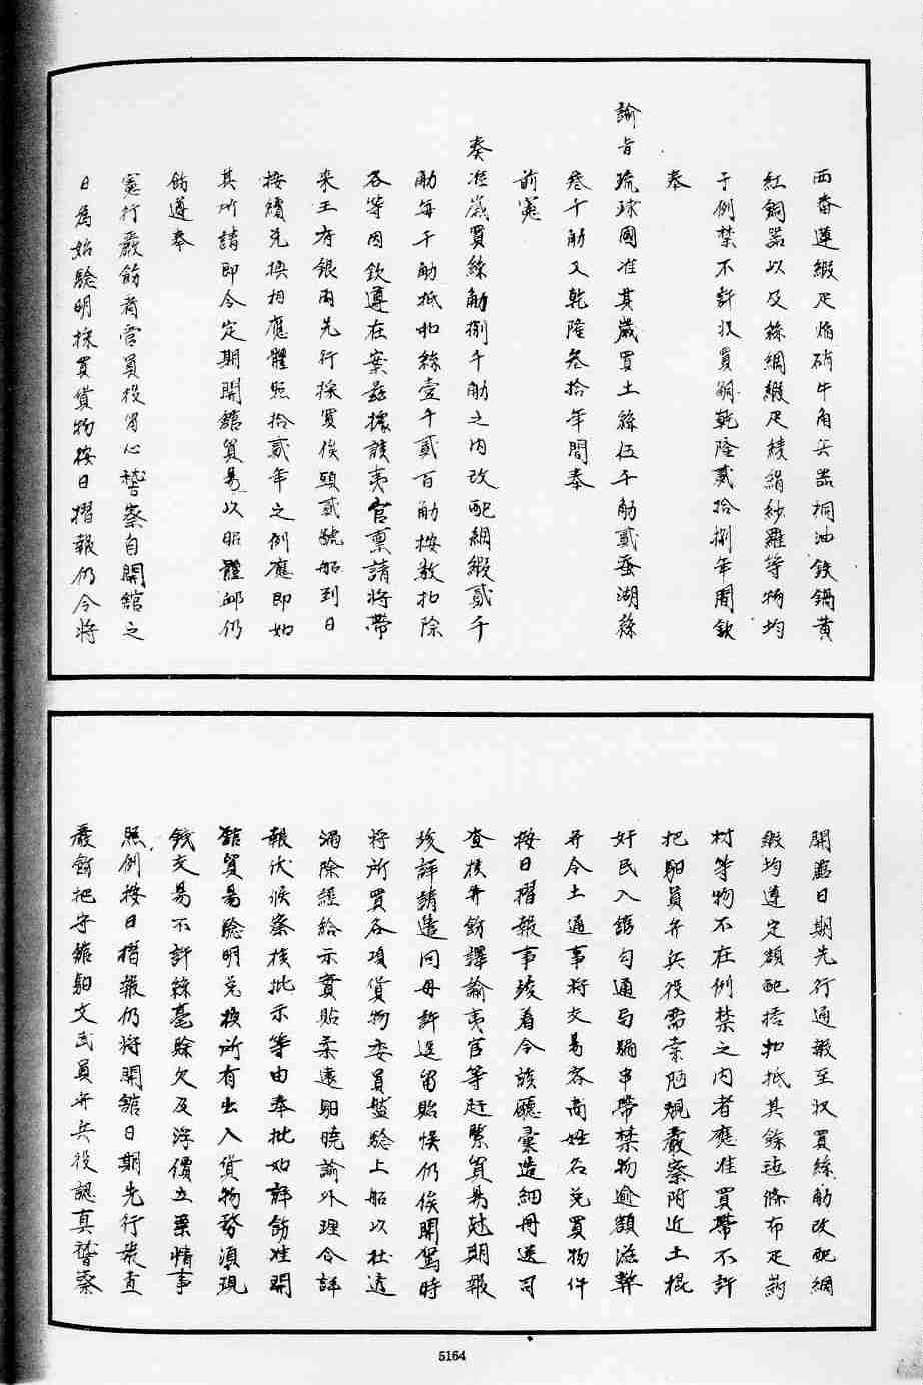 西番蓮緞疋焰硝牛角兵器桐油鉄鍋黃
紅銅器以及絲綢緞疋綾絹紗羅等物均
于例禁不許收買嗣乾隆貳拾捌年間欽
奉
諭旨琉球國准其歲買土絲伍千觔貳蚕湖絲
叁千觔又乾隆叁拾年間奉
前憲
奏准歲買絲觔捌千觔之内改配綢緞貳千
觔每千觔抵扣絲壹千貳百觔按数扣除
各等因欽遵在案茲據該夷官稟請將帶
來王府銀兩先行採買俟頭貳號船到日
按續兌換相應體照拾貳年之例應即如
其所請即令定期開舘貿易以昭體卹仍
飭遵奉
憲行嚴飭看守員役留心稽察自開舘之
日爲始驗明採買貨物按日摺報仍令將
開舘日期先行通報至收買絲觔改配綢
緞均遵定額配搭扣抵其餘毡條布疋葯
材等物不在例禁之内者應准買帶不許
把駐員弁兵役需索陋規嚴察附近土棍
奸民入舘勾通局騙串帶禁物逾額滋弊
并令土通事將交易客商姓名兌買物件
按日摺報事竣着令該廳彙造細冊送司
查核并飭譯諭夷官等赶緊貿易尅期報
竣詳請遣回毋許逗留貽悮仍俟開駕時
將所買各項貨物委員盤驗上船以杜透
漏除經給示實貼柔遠駐曉諭外理合詳
報伏候察核批示等由奉批如詳飭准開
舘貿易驗明兌換所有出入貨物務須現
錢交易不許絲毫賒欠及浮價立票情事
照例按日摺報仍將開舘日期先行報查
嚴飭把守舘駐文武員弁兵役認真稽察
5164